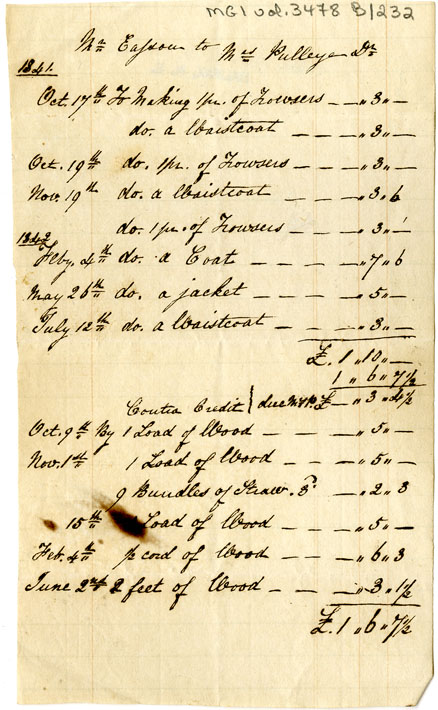 MG1 vol. 3478 B/232
Mr Eassou to Mrs Pulleye Dr
1841.
Oct. 17th To Making 1pr. of Trowsers — — „ 3 „ —
do. a Waistcoat — — — „ 3 „ —
Oct. 19th do. 1pr. of Trowsers — — — „ 3 „ —
Nov. 19th do. a Waistcoat — — — „ 3 „ 6
do. 1 pr. of Trowsers — — „ 3 „ —
1842
Feby. 4th do. a Coat — — — — „ 7 „ 6
May 26th do. a jacket — — — — „ 5 „ —
July 12th do. a Waistcoat — — — „ 3 „ —
£. 1 „ 10 „ —
1 „ 6 „ 7½
Contra Credit due Mrs P. £ — „ 3 „ 4½
Oct. 9th By 1 Load of Wood — — — „ 5 „ —
Nov. 1st 1 Load of Wood — — — „ 5 „ —
9 Bundles of Straw. 3d. — „ 2 „ 3
15th Load of Wood — — — „ 5 „ —
Feb. 4th ½ cord of Wood — — — „ 6 „ 3
June 2nd 2 feet of Wood — — — „ 3 „ 1½
£. 1 „ 6 „ 7½